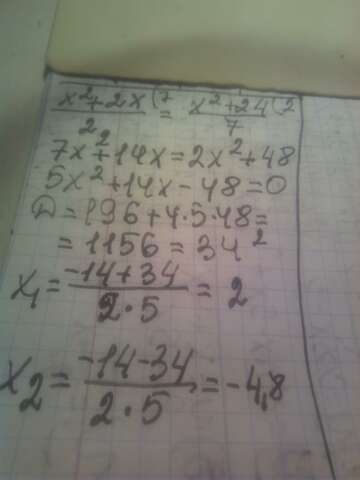 x²+2x(7 / 2 = x²+24(2 / 7
7x²+14x=2x²+48
5x²+14x-48=0
D=196+4·5·48=
=1156=34²
x₁= -14+34 / 2·5 = 2
x₂= -14-34 / 2·5 = -4,8